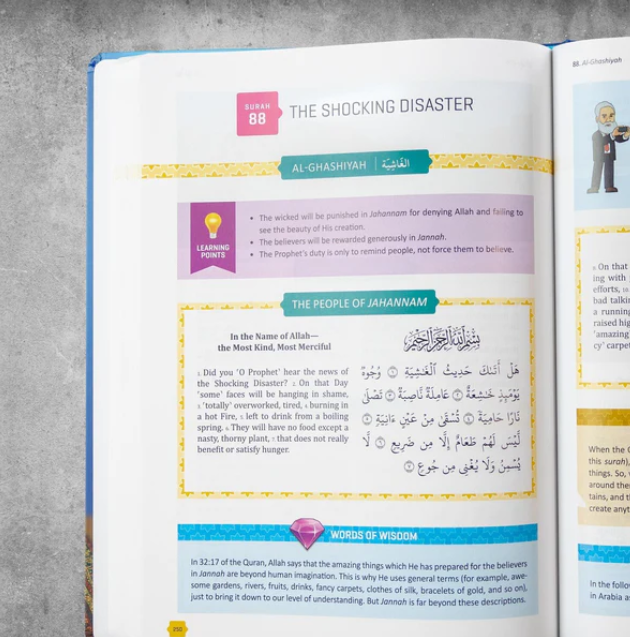 SURAH
88
THE SHOCKING DISASTER
AL-GHASHIYAH | الغَاشِيَة
LEARNING
POINTS
• The wicked will be punished in Jahannam for denying Allah and failing to
see the beauty of His creation.
• The believers will be rewarded generously in Jannah.
• The Prophet's duty is only to remind people, not force them to believe.
THE PEOPLE OF JAHANNAM
In the Name of Allah—
the Most Kind, Most Merciful
1. Did you 'O Prophet' hear the news of
the Shocking Disaster? 2. On that Day
'some' faces will be hanging in shame,
3. 'totally' overworked, tired, 4. burning in
a hot Fire, 5. left to drink from a boiling
spring. 6. They will have no food except a
nasty, thorny plant, 7. that does not really
benefit or satisfy hunger.
بِسْمِ اللَّهِ الرَّحْمَٰنِ الرَّحِيمِ
هَلْ أَتَىٰكَ حَدِيثُ ٱلْغَـٰشِيَةِ ١ وُجُوهٌ
يَوْمَئِذٍ خَـٰشِعَةٌ ٢ عَامِلَةٌ نَّاصِبَةٌ ٣ تَصْلَىٰ
نَارًا حَامِيَةً ٤ تُسْقَىٰ مِنْ عَيْنٍ ءَانِيَةٍ ٥
لَّيْسَ لَهُمْ طَعَامٌ إِلَّا مِن ضَرِيعٍ ٦ لَّا
يُسْمِنُ وَلَا يُغْنِى مِن جُوعٍ ٧
WORDS OF WISDOM
In 32:17 of the Quran, Allah says that the amazing things which He has prepared for the believers
in Jannah are beyond human imagination. This is why He uses general terms (for example, awe-
some gardens, rivers, fruits, drinks, fancy carpets, clothes of silk, bracelets of gold, and so on),
just to bring it down to our level of understanding. But Jannah is far beyond these descriptions.
88. Al-Ghashiyah
On that
ing with
efforts,
bad talki
a running
raised hig
'amazing
cy' carpe
When the
this surah),
things. So,
around the
tains, and t
create anyt
In the follo
in Arabia a